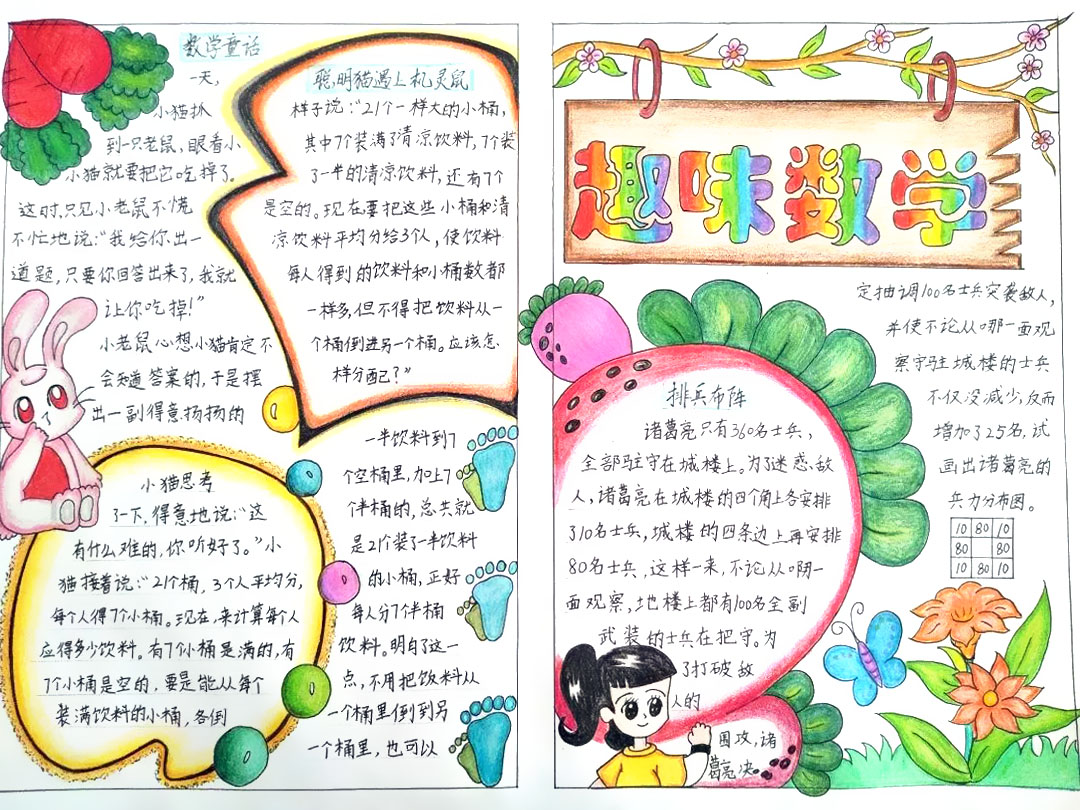 数学童话
一天,
小猫抓
到一只老鼠,眼看小
小猫就要把它吃掉了。
这时,只见小老鼠不慌
不忙地说:“我给你出一
道题,只要你回答出来了,我就
让你吃掉!”
小老鼠心想小猫肯定不
会知道答案的,于是摆
出一副得意扬扬的
聪明猫遇上机灵鼠
样子说:“21个一样大的小桶,
其中7个装满了清凉饮料,7个装
了一半的清凉饮料,还有7个
是空的。现在要把这些小桶和清
凉饮料平均分给3个人,使饮料
每人得到的饮料和小桶数都
一样多,但不得把饮料从一
个桶倒进另一个桶。应该怎
样分配?”
小猫思考
了一下,得意地说:“这
有什么难的,你听好了。”小
猫接着说:“21个桶,3个人平均分,
每个人得7个小桶。现在,来计算每个人
应得多少饮料。有7个小桶是满的,有
7个小桶是空的,要是能从每个
装满饮料的小桶,各倒
一半饮料到7
个空桶里,加上7
个半桶的,总共就
是21个装了一半饮料
的小桶,正好
每人分7个半桶
饮料。明白了这一
点,不用把饮料从
一个桶里倒到另
一个桶里,也可以
趣味数学
排兵布阵
诸葛亮只有360名士兵,
全部驻守在城楼上。为了迷惑敌
人,诸葛亮在城楼的四个角上各安排
了10名士兵,城楼的四条边上再安排
80名士兵,这样一来,不论从哪一
面观察,地楼上都有100名全副
武装的士兵在把守。为
了打破敌
人的
围攻,诸
葛亮决
定抽调100名士兵突袭敌人,
并使不论从哪一面观
察守驻城楼的士兵
不仅没减少,反而
增加了25名,试
画出诸葛亮的
兵力分布图。
10 80 10
80 80
10 80 10